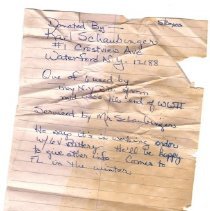 Donated By
Karl Schaubinger
#1 Crestview Ave
Waterford N.Y. 12188
One of used by
Navy
end of WWII
Serviced by Mr Schaubingers
He says it's in working order
w/6V battery He'll be happy
to give other info Comes to
FL in the winter